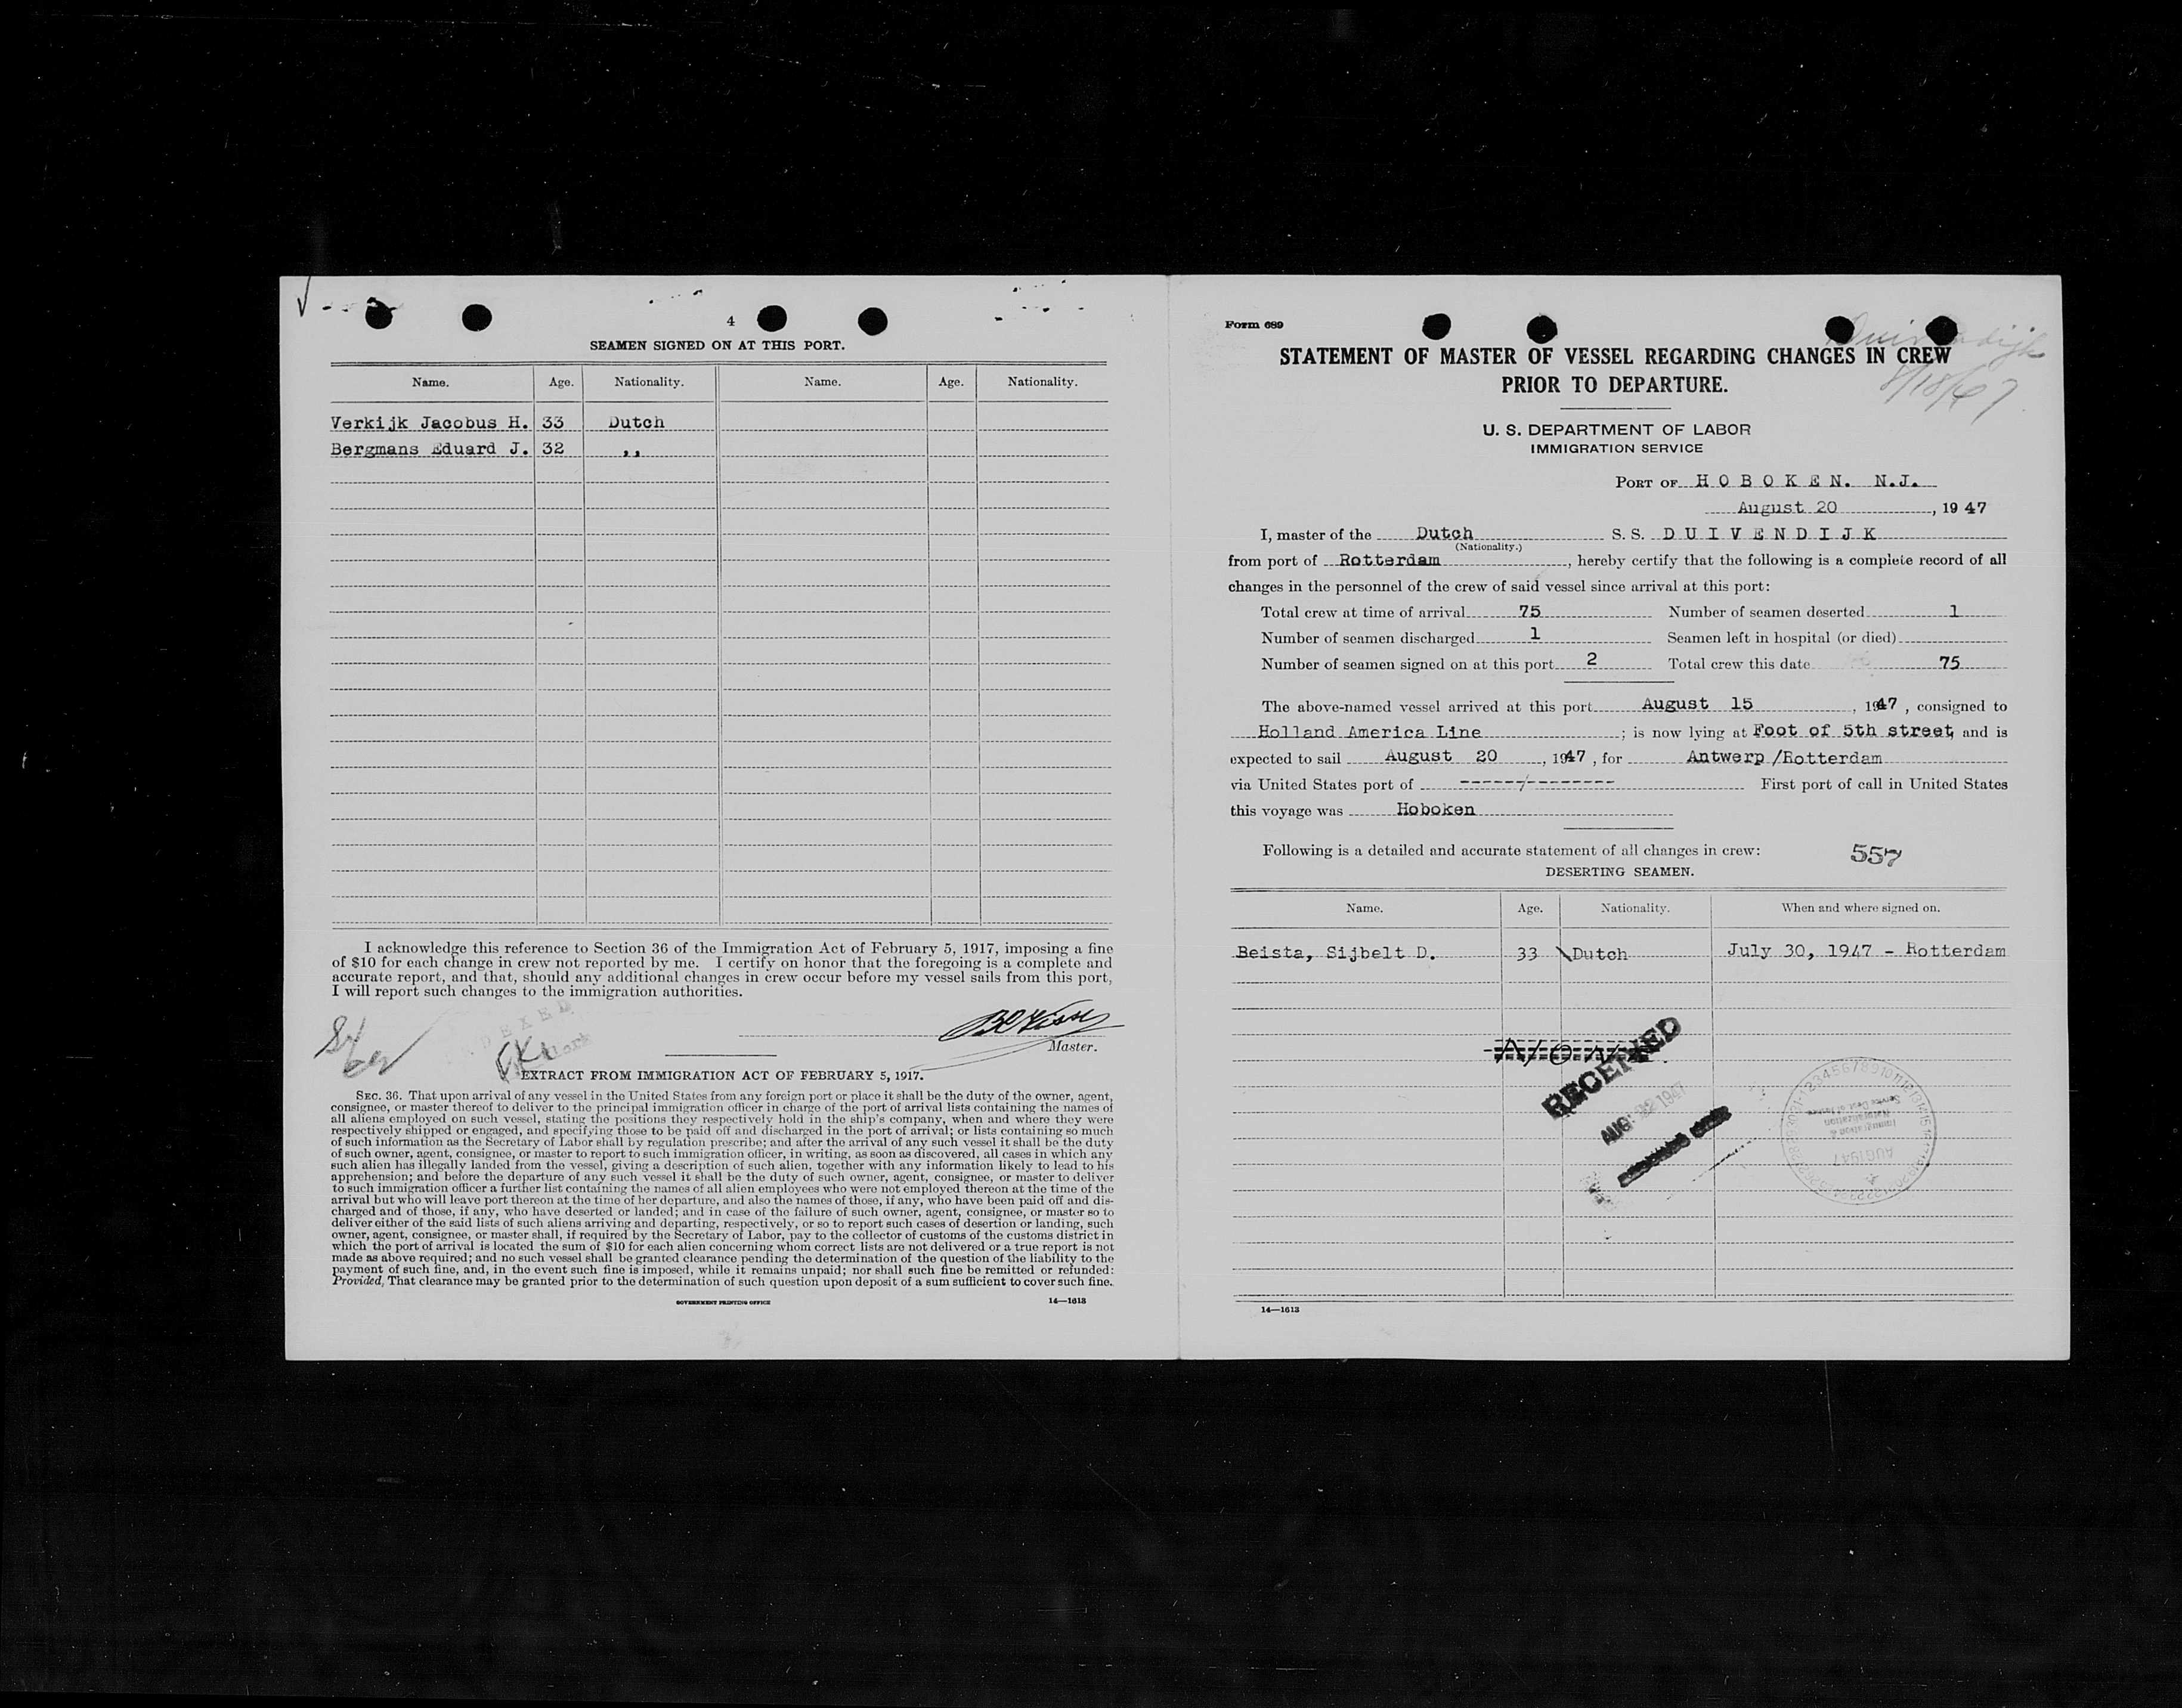 4
SEAMEN SIGNED ON AT THIS PORT.
Name. Age. Nationality. Name. Age. Nationality.
Verkijk Jacobus H. 33 Dutch
Bergmans Eduard J. 32 ,,
I acknowledge this reference to Section 36 of the Immigration Act of February 5, 1917, imposing a fine
of $10 for each change in crew not reported by me. I certify on honor that the foregoing is a complete and
accurate report, and that, should any additional changes in crew occur before my vessel sails from this port,
I will report such changes to the immigration authorities.
Master.
EXTRACT FROM IMMIGRATION ACT OF FEBRUARY 5, 1917.
SEC. 36. That upon arrival of any vessel in the United States from any foreign port or place it shall be the duty of the owner, agent,
consignee, or master thereof to deliver to the principal immigration officer in charge of the port of arrival lists containing the names of
all aliens employed on such vessel, stating the positions they respectively hold in the ship's company, when and where they were
respectively shipped or engaged, and specifying those to be paid off and discharged in the port of arrival; or lists containing so much
of such information as the Secretary of Labor shall by regulation prescribe; and after the arrival of any such vessel it shall be the duty
of such owner, agent, consignee, or master to report to such immigration officer, in writing, as soon as discovered, all cases in which any
such alien has illegally landed from the vessel, giving a description of such alien, together with any information likely to lead to his
apprehension; and before the departure of any such vessel it shall be the duty of such owner, agent, consignee, or master to deliver
to such immigration officer a further list containing the names of all alien employees who were not employed thereon at the time of the
arrival but who will leave port thereon at the time of her departure, and also the names of those, if any, who have been paid off and dis-
charged and of those, if any, who have deserted or landed; and in case of the failure of such owner, agent, consignee, or master so to
deliver either of the said lists of such aliens arriving and departing, respectively, or so to report such cases of desertion or landing, such
owner, agent, consignee, or master shall, if required by the Secretary of Labor, pay to the collector of customs of the customs district in
which the port of arrival is located the sum of $10 for each alien concerning whom correct lists are not delivered or a true report is not
made as above required; and no such vessel shall be granted clearance pending the determination of the question of the liability to the
payment of such fine, and, in the event such fine is imposed, while it remains unpaid; nor shall such fine be remitted or refunded:
Provided, That clearance may be granted prior to the determination of such question upon deposit of a sum sufficient to cover such fine.
GOVERNMENT PRINTING OFFICE 14—1613
Form 689
Duivendijk
8/18/47
STATEMENT OF MASTER OF VESSEL REGARDING CHANGES IN CREW
PRIOR TO DEPARTURE.
U. S. DEPARTMENT OF LABOR
IMMIGRATION SERVICE
PORT OF H O B O K E N. N.J.
August 20, 1947
I, master of the Dutch S. S. D U I V E N D I J K
(Nationality.)
from port of Rotterdam, hereby certify that the following is a complete record of all
changes in the personnel of the crew of said vessel since arrival at this port:
Total crew at time of arrival 75 Number of seamen deserted 1
Number of seamen discharged 1 Seamen left in hospital (or died)
Number of seamen signed on at this port 2 Total crew this date 75
The above-named vessel arrived at this port August 15, 1947, consigned to
Holland America Line; is now lying at Foot of 5th street, and is
expected to sail August 20, 1947, for Antwerp /Rotterdam
via United States port of ------/-------- First port of call in United States
this voyage was Hoboken
Following is a detailed and accurate statement of all changes in crew:
557
DESERTING SEAMEN.
Name. Age. Nationality. When and where signed on.
Beista, Sijbelt D. 33 Dutch July 30, 1947 - Rotterdam
RECEIVED
AUG 22 1947
Immigration &
Naturalization
AUG 1947
14—1613